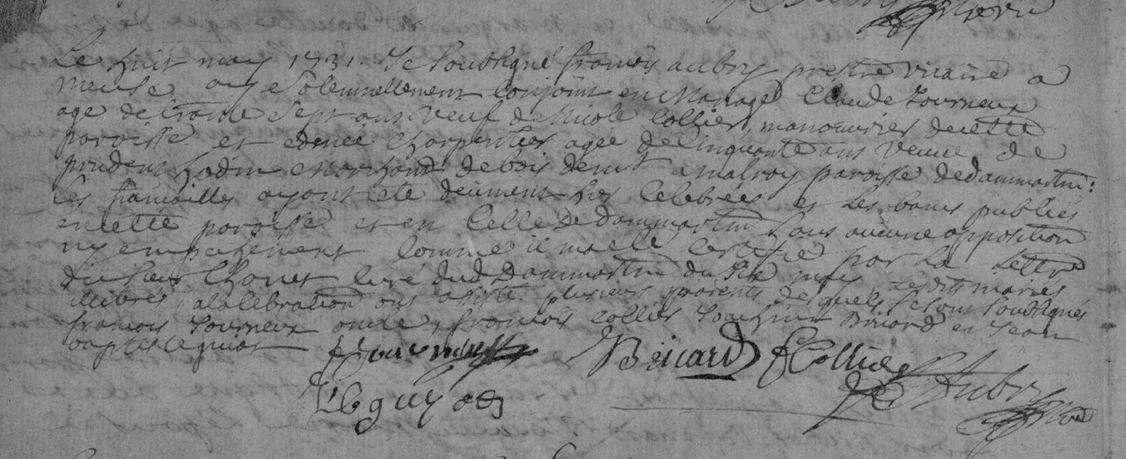 Le huit may 1731 Je soubsigné francois aubry prestre vicaire a
Meuse ay solemnellement conjoint en Mariage Claude tourneux
age de trente sept ans veuf de Nicole Collier manouvrier de cette
paroisse et charpentier agée de cinquante ans veuve de
prudent marchand de bois demt a malroy paroisse de dammartin:
les fiancailles ayant été deument celebrées et les bans publiés
en cette paroisse et en celle de dammartin sans aucune opposition
ny empechement comme il ma été certifié par la lettre
du sieur curé dud dammartin du may
a la celebration ont assisté plusieurs parents desquels se sont soubsignés
francois tourneux oncle, francois collier, Briard et Jean
baptiste
Briard f Collier
f Aubry